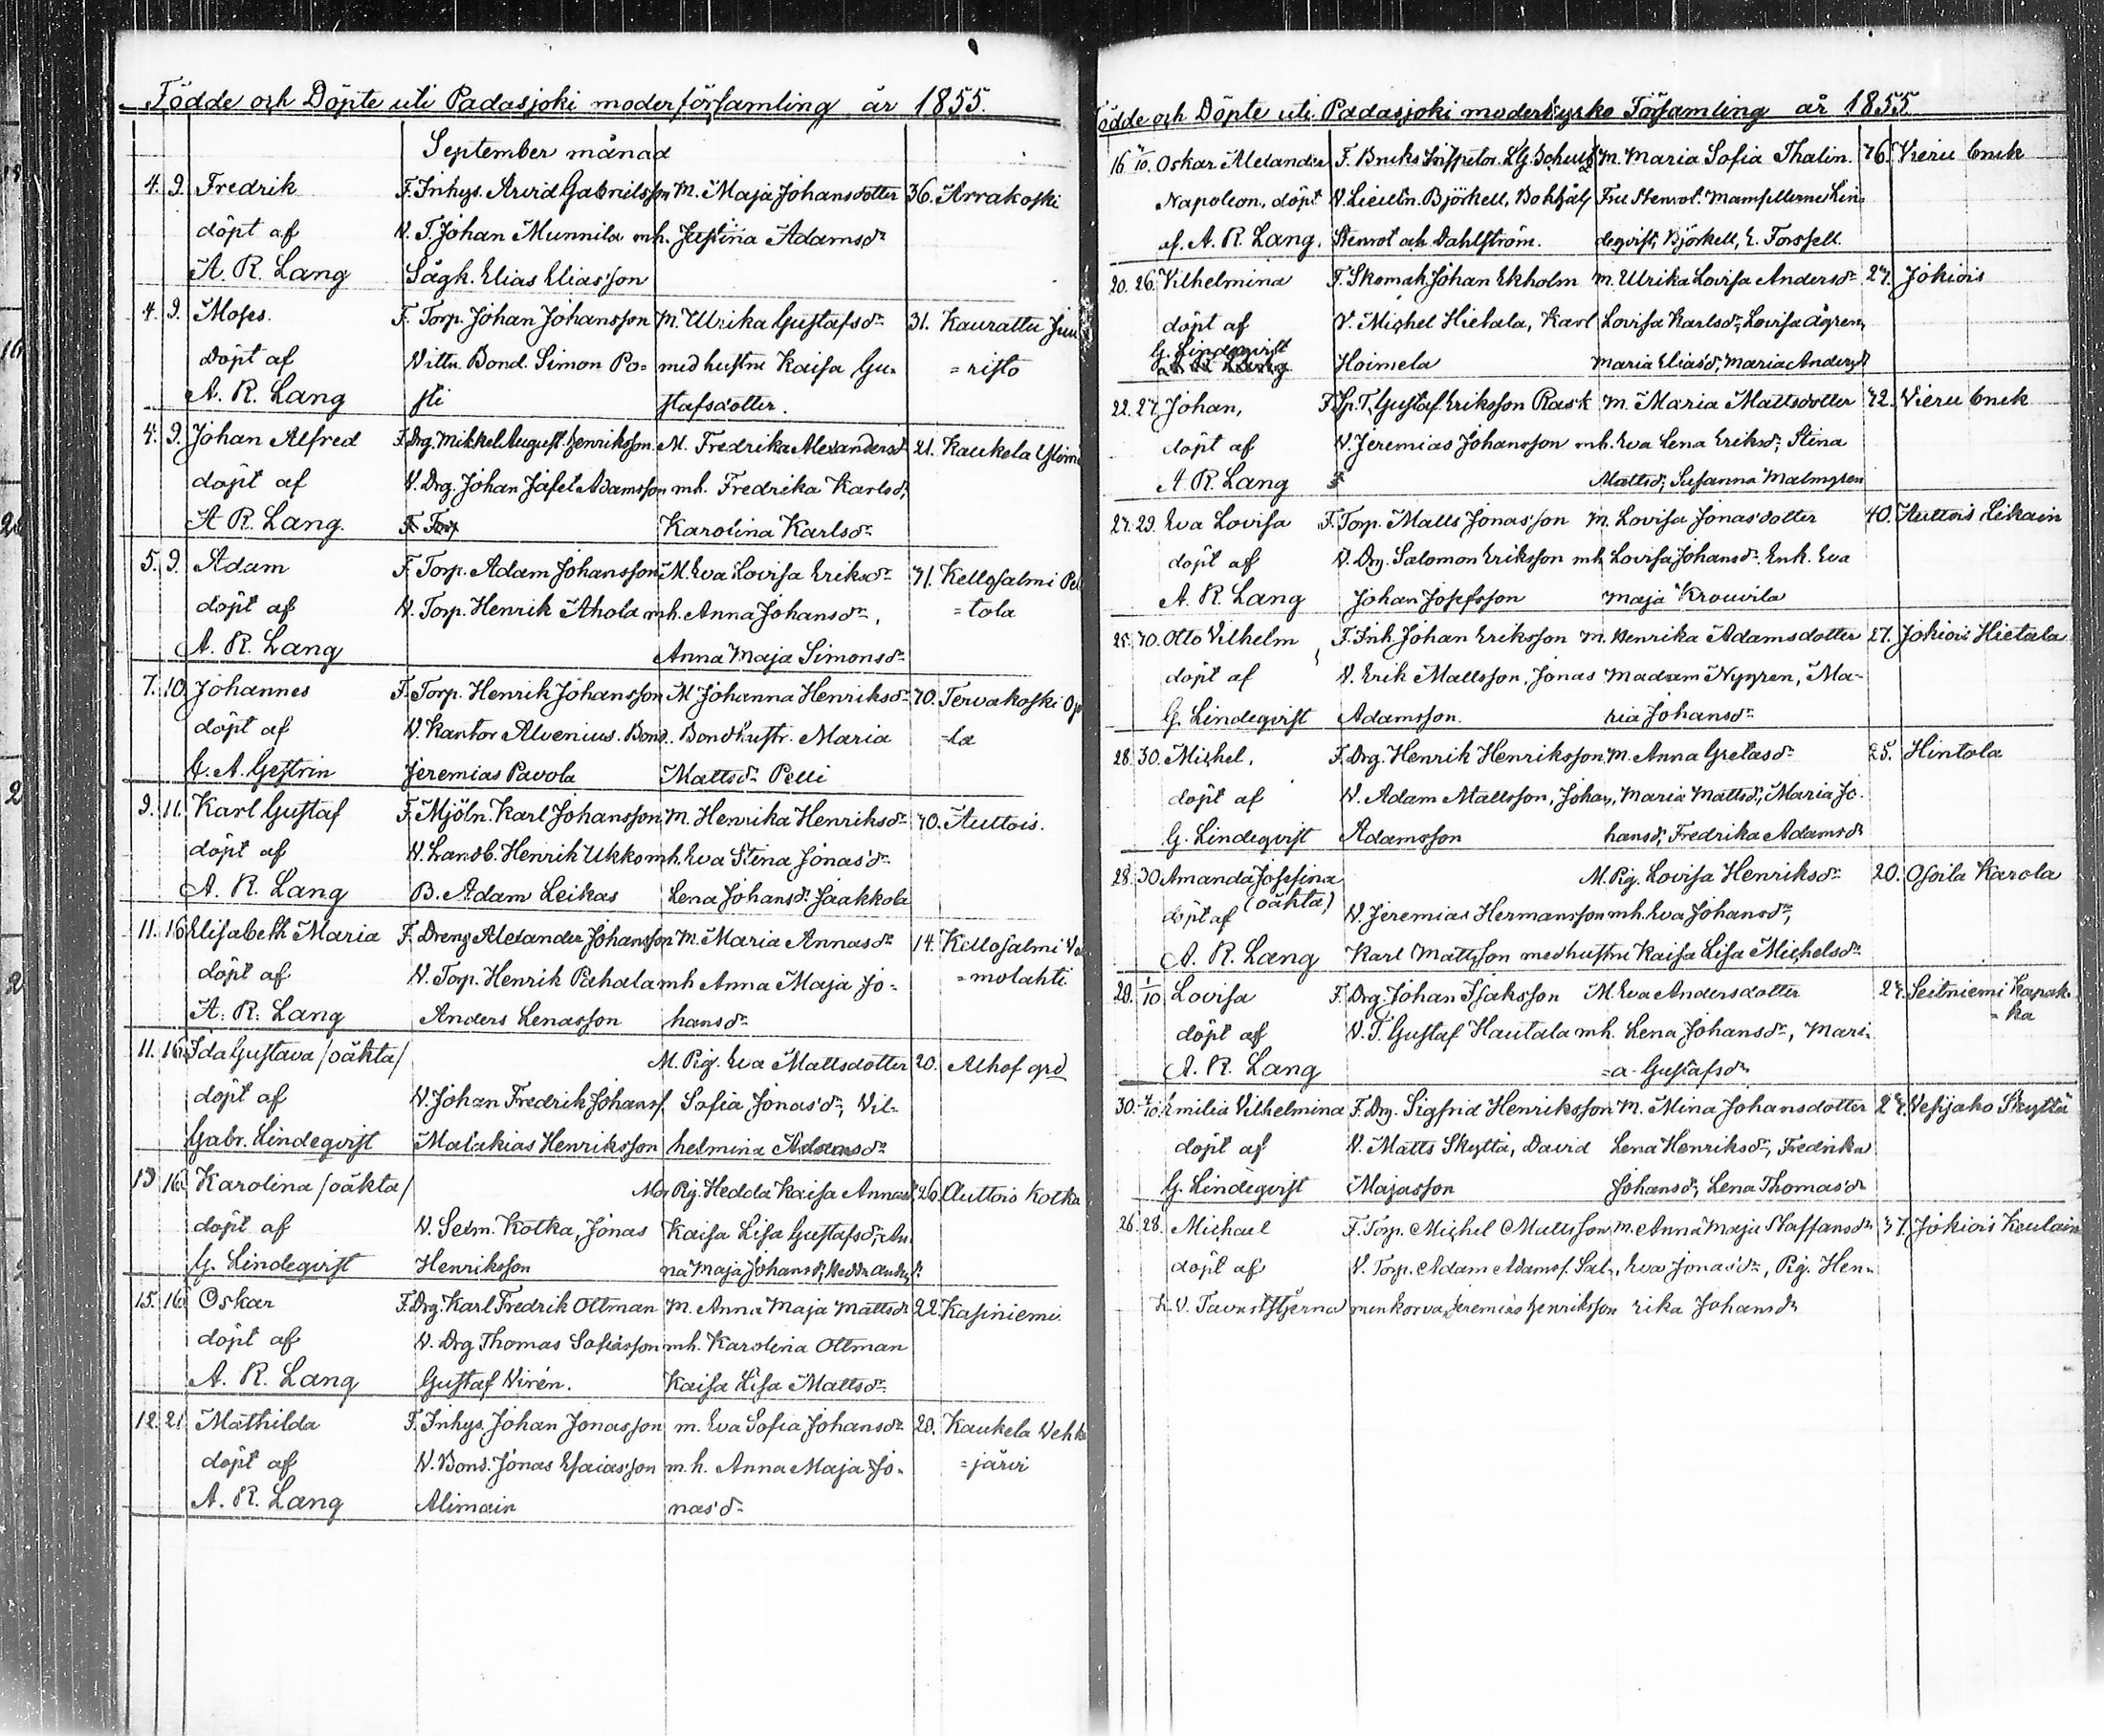 Födde och Döpte uti Padasjoki moderförsamling år 1855.
September månad
4. 9. Fredrik F. Inhys. Arvid Gabrielsson M. Maja Johansdotter 36. Arrakoski
döpt af V. T. Johan Munnila mh. Justina Adamsdr
A. R. Lang Sågk. Elias Eliasson
4. 9. Moses. F. Torp. Johan Johansson M. Ulrika Gustafsdr 31. Kaurattu
döpt af Vittn. Bond. Simon Po= med hustru Kaisa Gu= =risto
A. R. Lang sti stafsdotter.
4. 9. Johan Alfred F. Drg. Mikkel August Henriksson M. Fredrika Alexandersd 21. Kaukela
döpt af V. Drg. Johan Jafet Adamsson mh. Fredrika Karlsd,
A R. Lang. Karolina Karlsdr
5. 9. Adam F. Torp. Adam Johansson M. Eva Lovisa Eriksdr 71. Kellosalmi Pel
döpt af V. Torp. Henrik Ahola mh. Anna Johansdr, =tola
A. R. Lang Anna Maja Simonsdr
7. 10. Johannes F. Torp. Henrik Johansson M Johanna Henriksdr 70. Tervakoski
döpt af V. Kantor Alvenius. Bond. Bondhustr. Maria =la
C. A. Gestrin Jeremias Pavola Mattsdr Pelli
9. 11. Karl Gustaf F. Mjöln. Karl Johansson M. Henrika Henriksdr 70. Auttois.
döpt af V. Landb. Henrik Ukko mh. Eva Stina Jonasdr
A. R. Lang B. Adam Leikas Lena Johansdr Jaakkola
11. 16 Elisabeth Maria F. Dreng Alexander Johansson M. Maria Annasdr 14. Kellosalmi
döpt af V. Torp. Henrik Pahala mh Anna Maja Jo= =molahti
A. R. Lang Anders Lenasson hansdr
11. 16 Ida Gustava /oäkta/ M. Pig. Eva Mattsdotter 20. Alhof grd
döpt af V. Johan Fredrik Johanss. Sofia Jonasdr, Vil=
Gabr. Lindeqvist Malakias Henriksson helmina Adamsdr
13 16 Karolina /oäkta/ M. Pig. Hedda Kaisa Annasdr 26. Auttois Kotka
döpt af V. Sedm. Kotka, Jonas Kaisa Lisa Gustafsdr, An
G. Lindeqvist Henriksson na Maja Johansd, Hedda Andersd.
15. 16 Oskar F. Drg. Karl Fredrik Ottman M. Anna Maja Mattsdr 22. Kasiniemi.
döpt af V. Drg Thomas Sofiasson mh. Karolina Ottman
A. R. Lang Gustaf Virén. Kaisa Lisa Mattsdr
12. 21 Mathilda F. Inhys. Johan Jonasson m. Eva Sofia Johansdr 20. Kaukela Vehk
döpt af V. Bond. Jonas Esaiasson m.h. Anna Maja Jo= =järvi
A. R. Lang Alimain nasdr
Födde och Döpte uti Padasjoki moderkyrko Församling år 1855.
16 /10. Oskar Alexander F. Bruks Inspektor. L. G. Schultz M. Maria Sofia Thalin. 76. Vieru bruk
Napoleon, döpt V. Lieutn. Björkell, Bokhål Fru Stenrot. Mamsellerne Lin=
af. A. R. Lang. Stenrot och Dahlström. deqvist, Björkell, E. Forssell.
20. 26. Vilhelmina F. Skomak. Johan Ekholm M. Ulrika Lovisa Andersdr 27. Jokiois
döpt af V. Michel Hietala, Karl Lovisa Karlsdr, Lovisa Ågren,
G. Lindeqvist Hoimela Maria Eliasd, Maria Andersd
22. 27. Johan, F. Sp. T. Gustaf Eriksson Rask M. Maria Mattsdotter 72. Vieru bruk
döpt af V. Jeremias Johansson mh. Eva Lena Eriksdr, Stina
A. R. Lang Mattsd, Susanna Malmgren
27. 29. Eva Lovisa F. Torp. Matts Jonasson M. Lovisa Jonasdotter 40. Auttois Leikain
döpt af V. Drg. Salomon Eriksson mh Lovisa Johansdr. Enk. Eva
A. R. Lang Johan Josefsson Maja Krouvila
25. 70. Otto Vilhelm F. Inh. Johan Eriksson M. Henrika Adamsdotter 27. Jokiois Hietala
döpt af V. Erik Mattsson, Jonas Madam Nygren, Ma=
G. Lindeqvist Adamsson. ria Johansdr
28. 30. Michel. F. Drg. Henrik Henriksson M. Anna Gretasdr 25. Hintola
döpt af V. Adam Mattsson, Johan, Maria Mattsd, Maria Jo.
G. Lindeqvist Adamsson hansd, Fredrika Adamsdr
28. 30 Amanda Josefina M. Pig. Lovisa Henriksdr 20. Osoila Karola
(oäkta)
döpt af V. Jeremias Hermansson mh. Eva Johansdr,
A. R. Lang Karl Mattsson med hustru Kaisa Lisa Michelsdr
29. 1/10 Lovisa F. Drg. Johan Isaksson M. Eva Andersdotter 27. Seitniemi Kapak=
=ka
döpt af V. T. Gustaf Hautala mh. Lena Johansdr, Mari=
A. R. Lang =a Gustafsdr
30. 7/10 Emilia Vilhelmina F. Drg. Sigfrid Henriksson M. Mina Johansdotter 27. Vesijako Skyttä
döpt af V. Matts Skyttä, David Lena Henriksdr, Fredrika
G. Lindeqvist Majasson Johansd, Lena Thomasdr
26. 28. Michael F. Torp. Michel Mattsson M. Anna Maja Staffansdr 37. Jokiois Keulain
döpt af V. Torp. Adam Adamss. Sal=, Eva Jonasdr, Pig. Hen=
K. V. Tavaststjerna menkorva, Jeremias Henriksson rika Johansdr